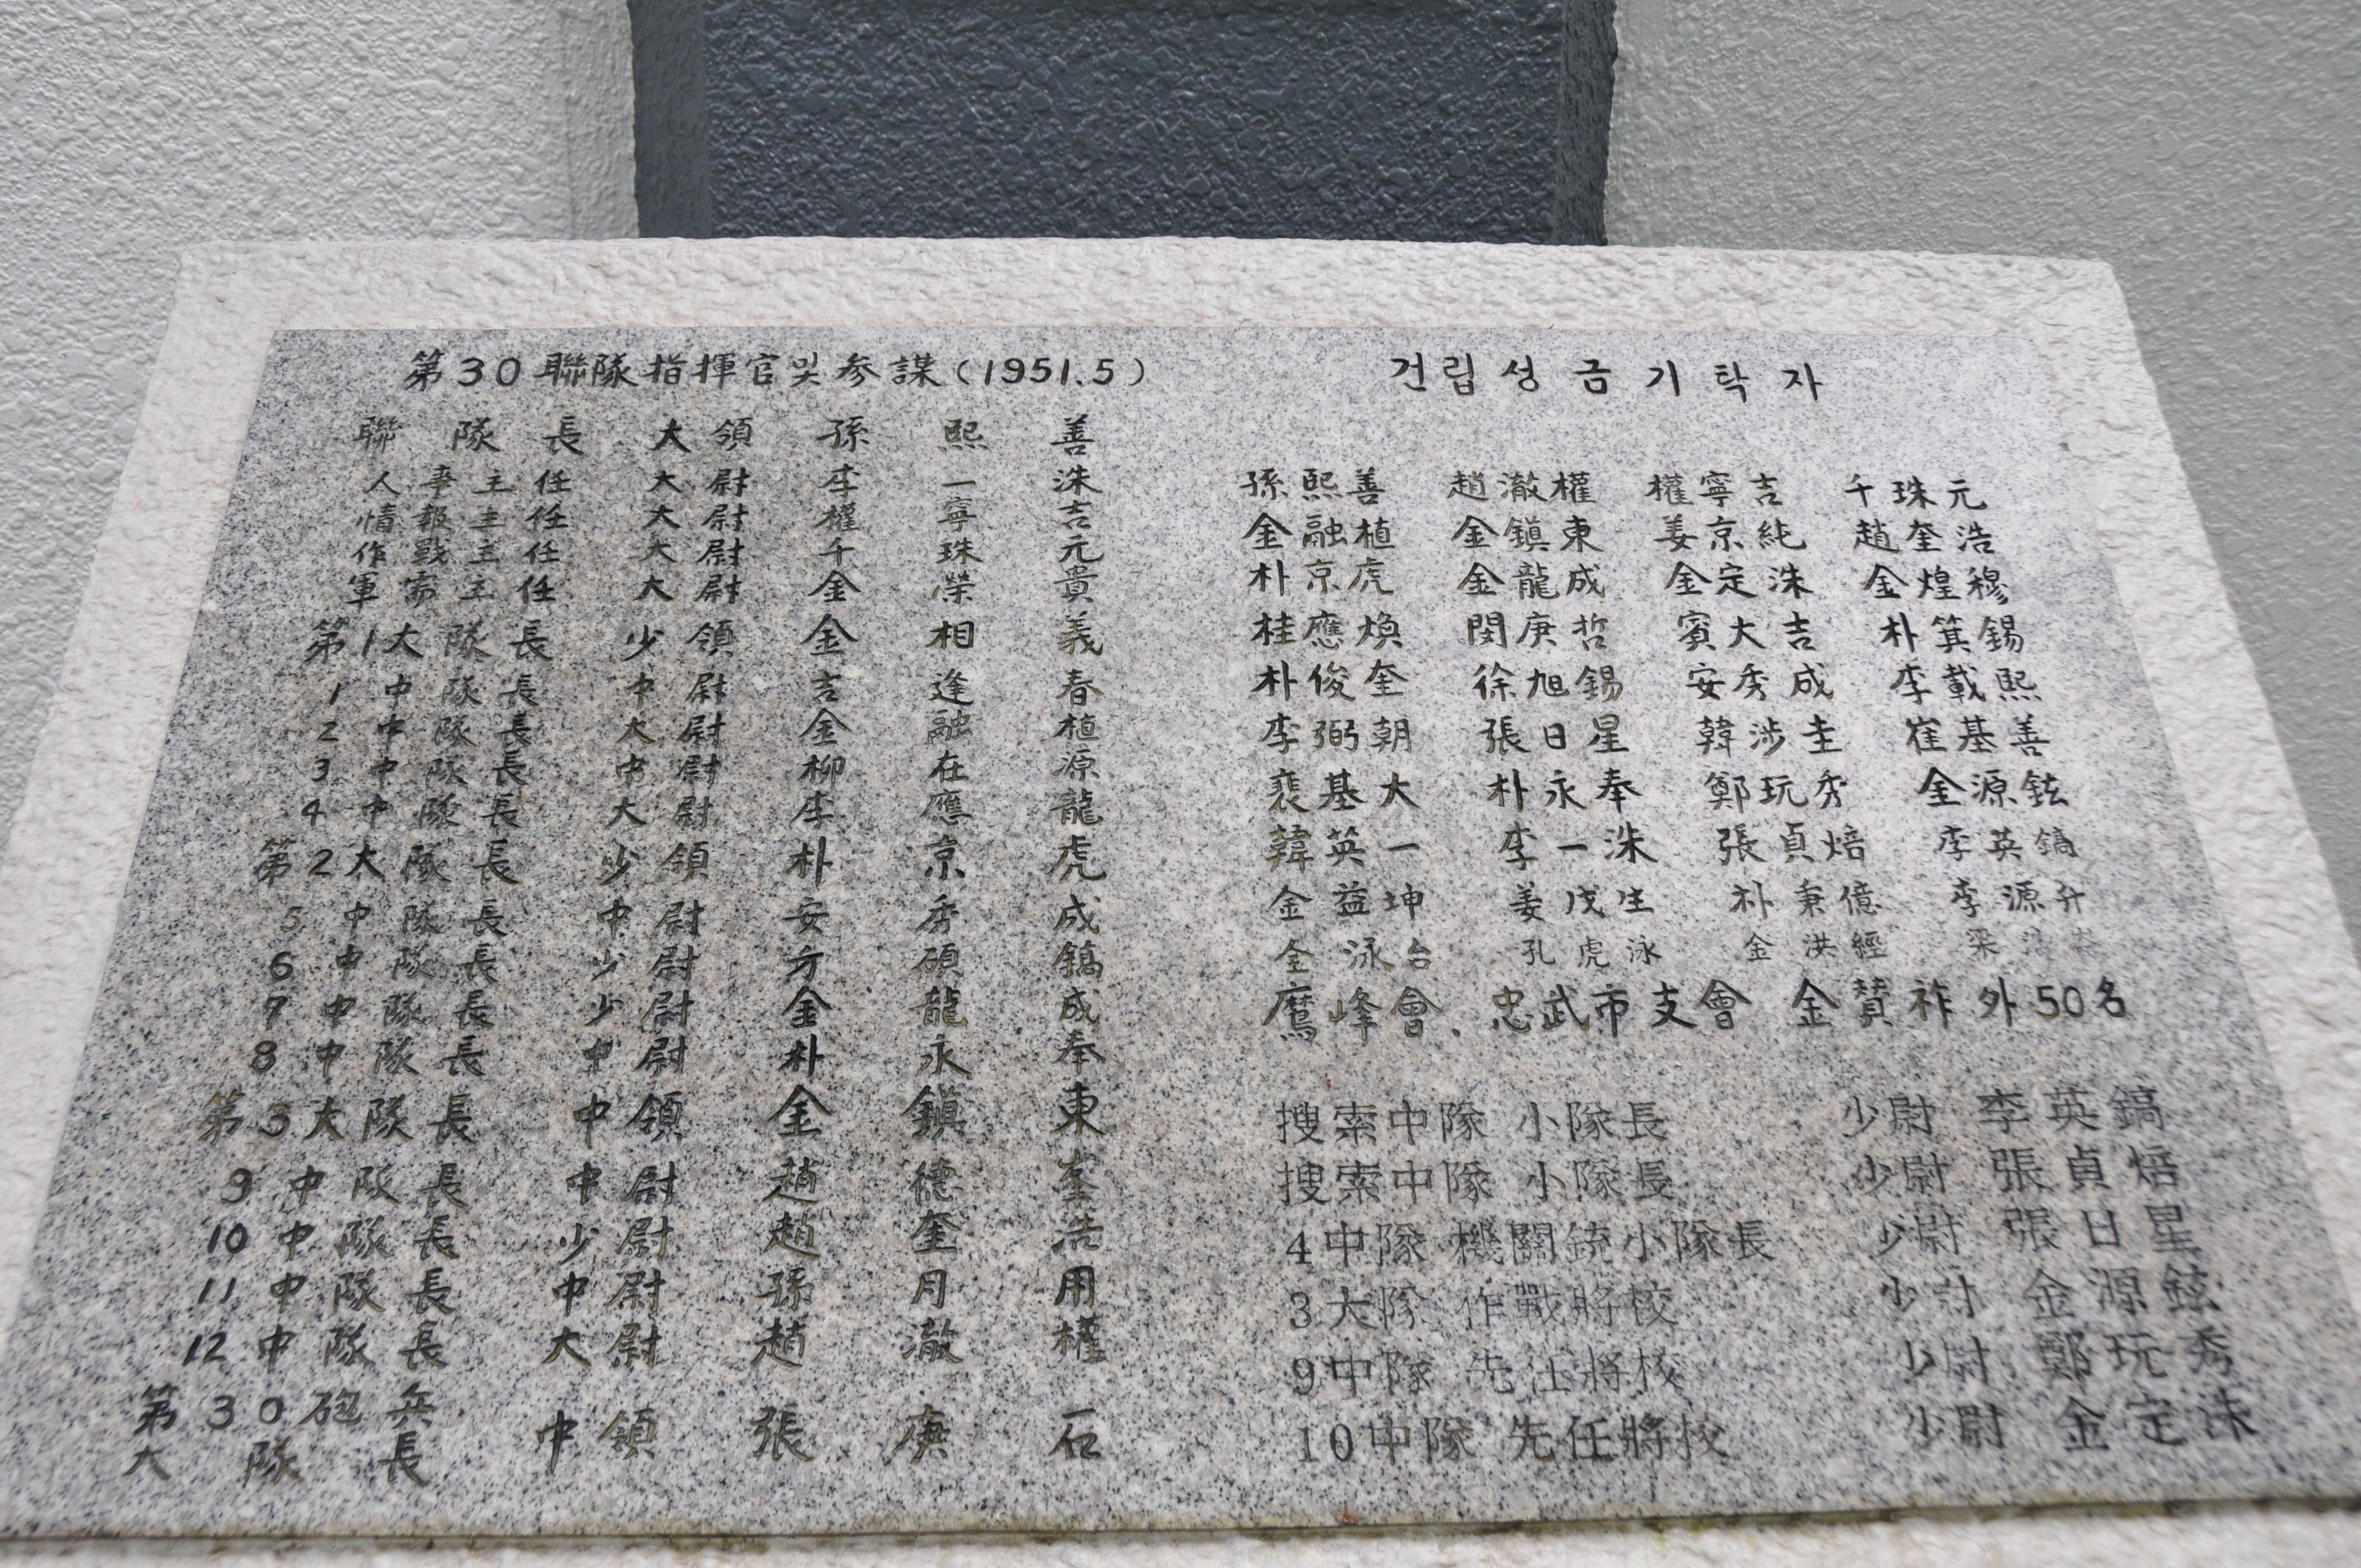 第30聯隊指揮官및参謀(1951.5)
聯隊長 大領 孫熙善
人事主任 大尉 李一洙
情報主任 大尉 權寧吉
作戰主任 大尉 千珠元
軍需主任 大尉 金榮貴
第1大隊長 少領 金相義
1中隊長 中尉 吉逢春
2中隊長 大尉 金融植
3中隊長 中尉 柳在源
4中隊長 大尉 李應龍
第2大隊長 少領 朴京虎
5中隊長 中尉 安秀成
6中隊長 少尉 方碩鎬
7中隊長 少尉 金龍成
8中隊長 中尉 朴永奉
第3大隊長 中領 金鎭東
9中隊長 中尉 趙德峯
10中隊長 少尉 趙奎浩
11中隊長 中尉 孫月用
12中隊長 大尉 趙澈權
第30砲兵
大隊長 中領 張庚石
건립성금기탁자
孫熙善 趙澈權 權寧吉 千珠元
金融植 金鎭東 姜京純 趙奎浩
朴京虎 金龍成 金定洙 金煌穆
桂應煥 閔庚哲 賓大吉 朴箕錫
朴俊奎 徐旭錫 安秀成 李載熙
李弼朝 張日星 韓涉圭 崔基善
裵基大 朴永奉 鄭玩秀 金源鉉
韓英一 李一洙 張貞焙 李英鎬
金益坤 姜戊生 朴秉億 李源升
全泳台 孔虎泳 金洪經 梁
鷹峰會. 忠武市支會 金贊祚 外50名
搜索中隊 小隊長 少尉 李英鎬
搜索中隊 小隊長 少尉 張貞焙
4中隊 機關銃小隊長 少尉 張日星
3大隊 作戰將校 少尉 金源鉉
9中隊 先任將校 少尉 鄭玩秀
10中隊 先任將校 少尉 金定洙